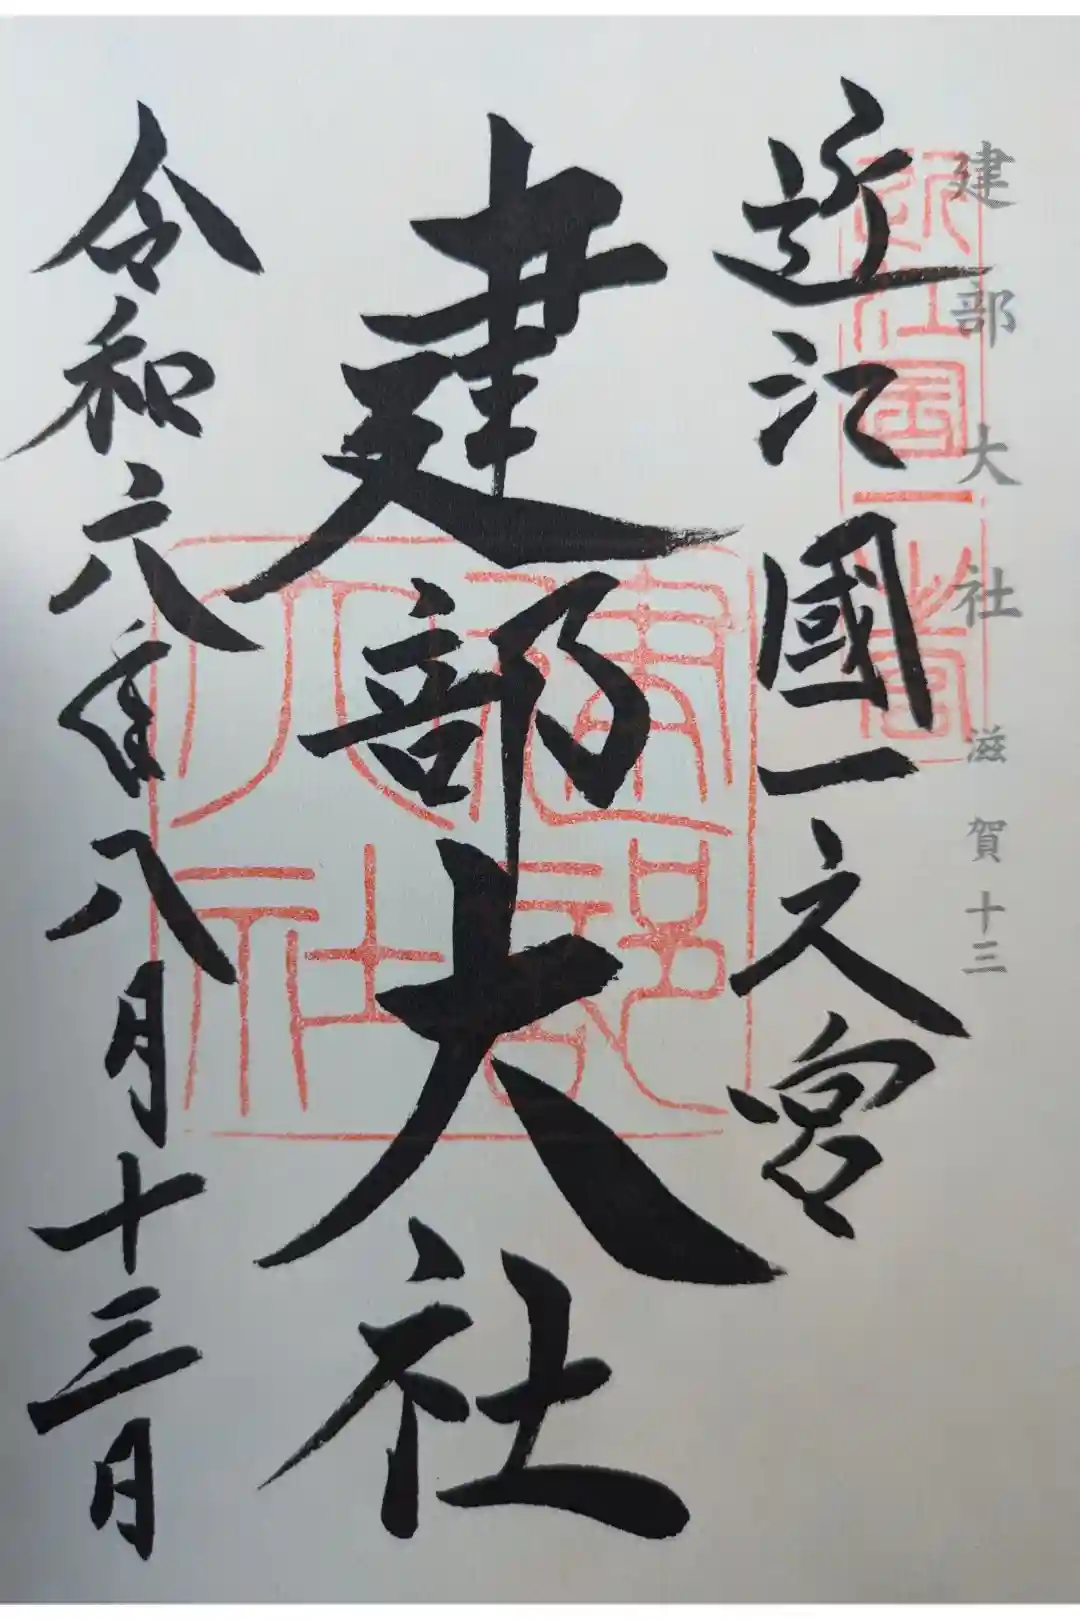 建部大社 滋賀十三
近江國一之宮
建部大社
令和六年八月十三日
近江国一之宮
建部大社